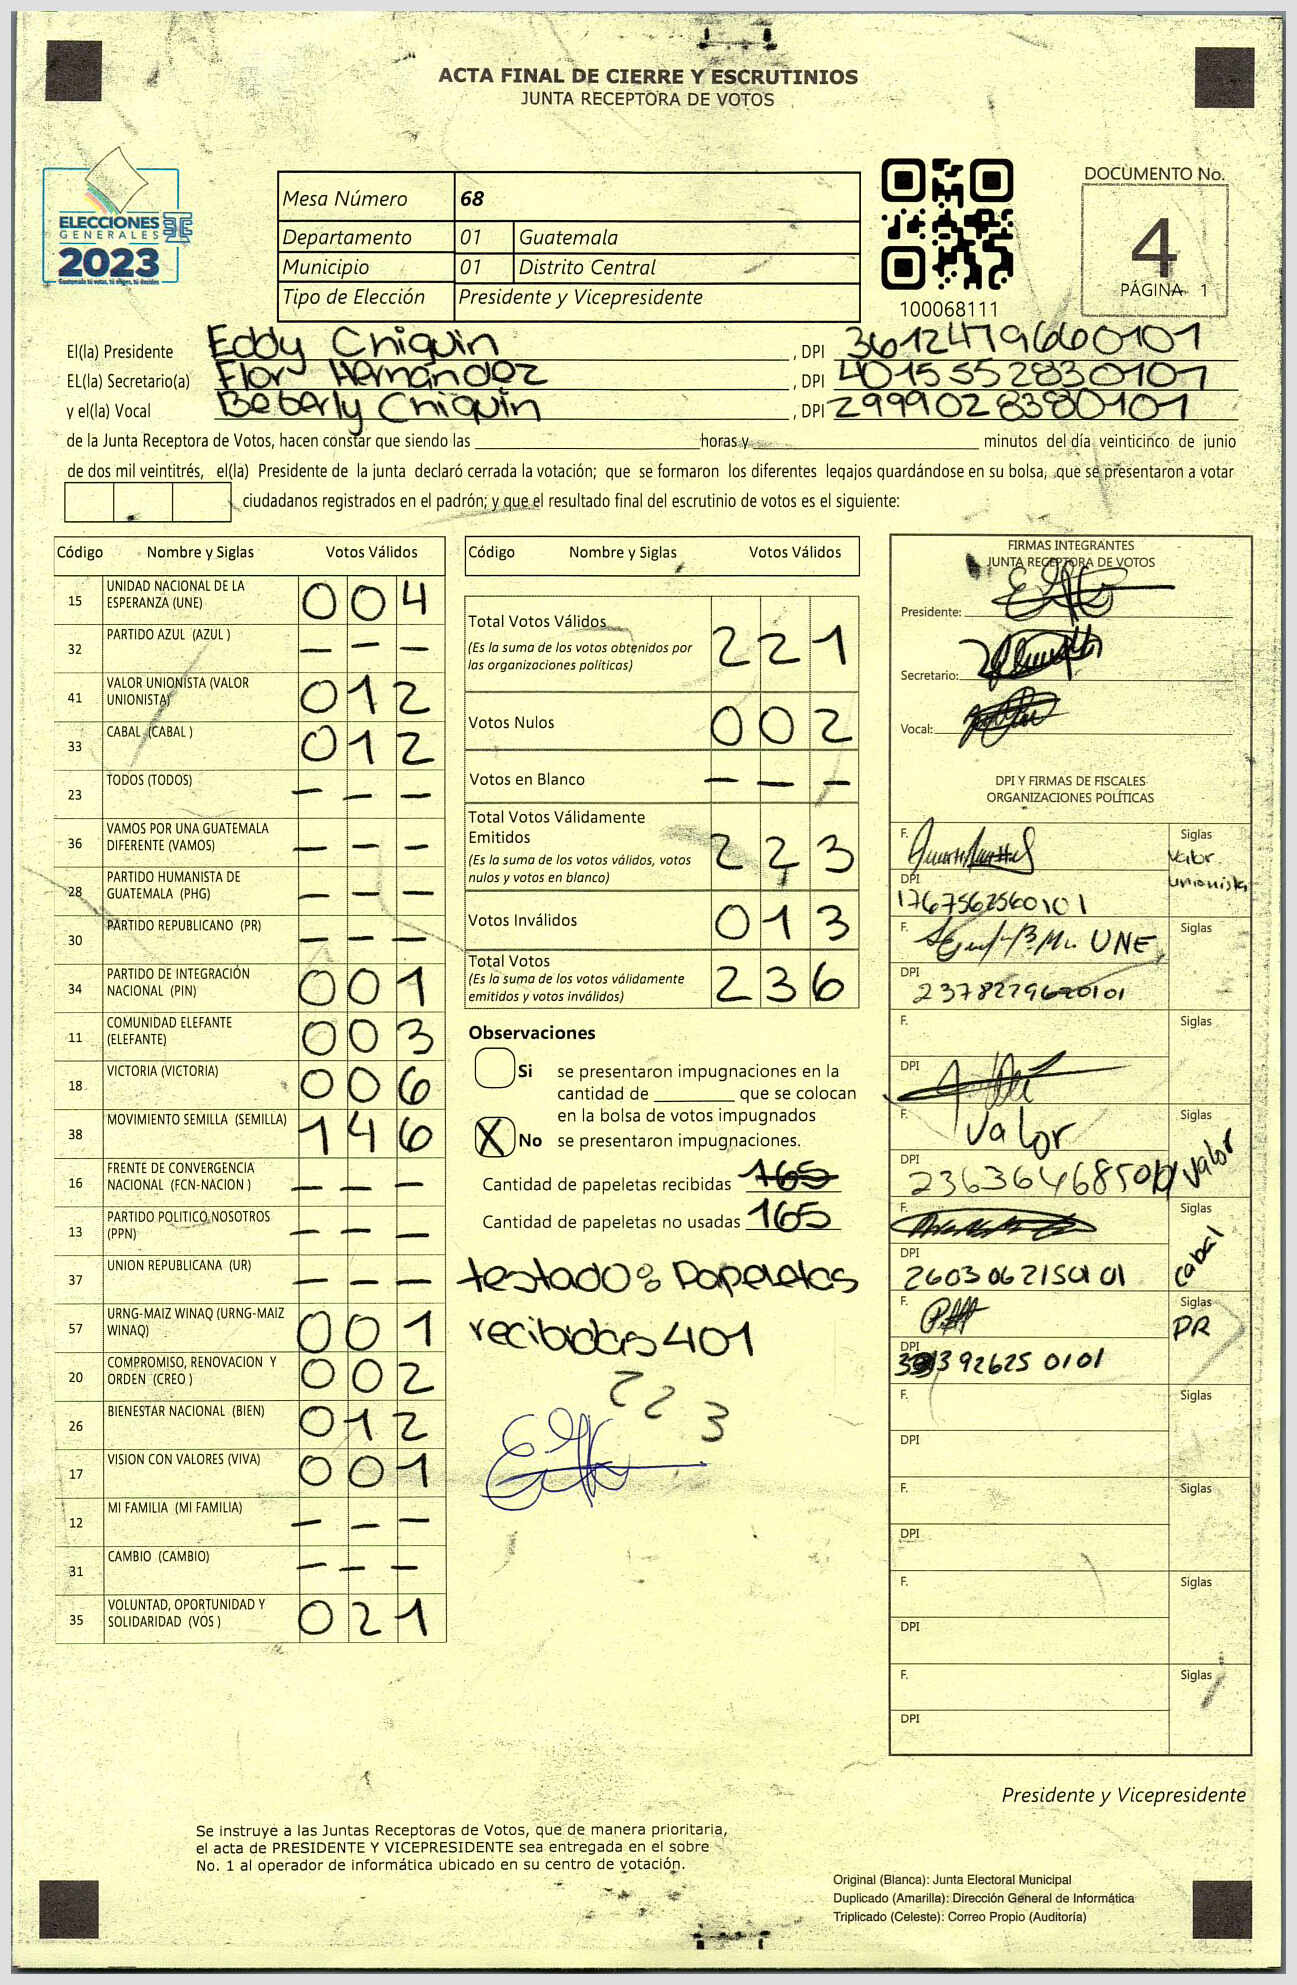 ACTA FINAL DE CIERRE Y ESCRUTINIOS
JUNTA RECEPTORA DE VOTOS
ELECCIONES
GENERALES
2023
Guatemala tú votas, tú eliges, tú decides
Mesa Número 68
Departamento 01 Guatemala
Municipio 01 Distrito Central
Tipo de Elección Presidente y Vicepresidente
100068111
DOCUMENTO No.
4
PÁGINA 1
El(la) Presidente Eddy Chiquin , DPI 3612479660101
EL(la) Secretario(a) Flor Hernández , DPI 4015552830101
y el(la) Vocal Beberly Chiquin , DPI 2999028380101
de la Junta Receptora de Votos, hacen constar que siendo las horas y minutos del día veinticinco de junio
de dos mil veintitrés, el(la) Presidente de la junta declaró cerrada la votación; que se formaron los diferentes legajos guardándose en su bolsa, que se presentaron a votar
ciudadanos registrados en el padrón; y que el resultado final del escrutinio de votos es el siguiente:
Código Nombre y Siglas Votos Válidos
15 UNIDAD NACIONAL DE LA ESPERANZA (UNE) 004
32 PARTIDO AZUL (AZUL ) - - -
41 VALOR UNIONISTA (VALOR UNIONISTA) 012
33 CABAL (CABAL ) 012
23 TODOS (TODOS) - - -
36 VAMOS POR UNA GUATEMALA DIFERENTE (VAMOS) - - -
28 PARTIDO HUMANISTA DE GUATEMALA (PHG) - - -
30 PARTIDO REPUBLICANO (PR) - - -
34 PARTIDO DE INTEGRACIÓN NACIONAL (PIN) 001
11 COMUNIDAD ELEFANTE (ELEFANTE) 003
18 VICTORIA (VICTORIA) 006
38 MOVIMIENTO SEMILLA (SEMILLA) 146
16 FRENTE DE CONVERGENCIA NACIONAL (FCN-NACION ) - - -
13 PARTIDO POLITICO NOSOTROS (PPN) - - -
37 UNION REPUBLICANA (UR) - - -
57 URNG-MAIZ WINAQ (URNG-MAIZ WINAQ) 001
20 COMPROMISO, RENOVACION Y ORDEN (CREO ) 002
26 BIENESTAR NACIONAL (BIEN) 012
17 VISION CON VALORES (VIVA) 001
12 MI FAMILIA (MI FAMILIA) - - -
31 CAMBIO (CAMBIO) - - -
35 VOLUNTAD, OPORTUNIDAD Y SOLIDARIDAD (VOS ) 021
Código Nombre y Siglas Votos Válidos
Total Votos Válidos 221
(Es la suma de los votos obtenidos por
las organizaciones políticas)
Votos Nulos 002
Votos en Blanco - - -
Total Votos Válidamente
Emitidos 223
(Es la suma de los votos válidos, votos
nulos y votos en blanco)
Votos Inválidos 013
Total Votos 236
(Es la suma de los votos válidamente
emitidos y votos inválidos)
Observaciones
Si se presentaron impugnaciones en la
cantidad de que se colocan
en la bolsa de votos impugnados
X No se presentaron impugnaciones.
Cantidad de papeletas recibidas 165
Cantidad de papeletas no usadas 165
testado: Papeletas
recibidas 401
223
FIRMAS INTEGRANTES
JUNTA RECEPTORA DE VOTOS
Presidente:
Secretario:
Vocal:
DPI Y FIRMAS DE FISCALES
ORGANIZACIONES POLÍTICAS
F. Siglas Valor unionista
DPI 1767562560101
F. UNE Siglas
DPI 2378279620101
F. Siglas
DPI
F. Valor Siglas Valor
DPI
F. Siglas Cabal
DPI
F. Siglas PR
DPI
F. Siglas
DPI
F. Siglas
DPI
F. Siglas
DPI
F. Siglas
DPI
Presidente y Vicepresidente
Se instruye a las Juntas Receptoras de Votos, que de manera prioritaria,
el acta de PRESIDENTE Y VICEPRESIDENTE sea entregada en el sobre
No. 1 al operador de informática ubicado en su centro de votación.
Original (Blanca): Junta Electoral Municipal
Duplicado (Amarilla): Dirección General de Informática
Triplicado (Celeste): Correo Propio (Auditoría)